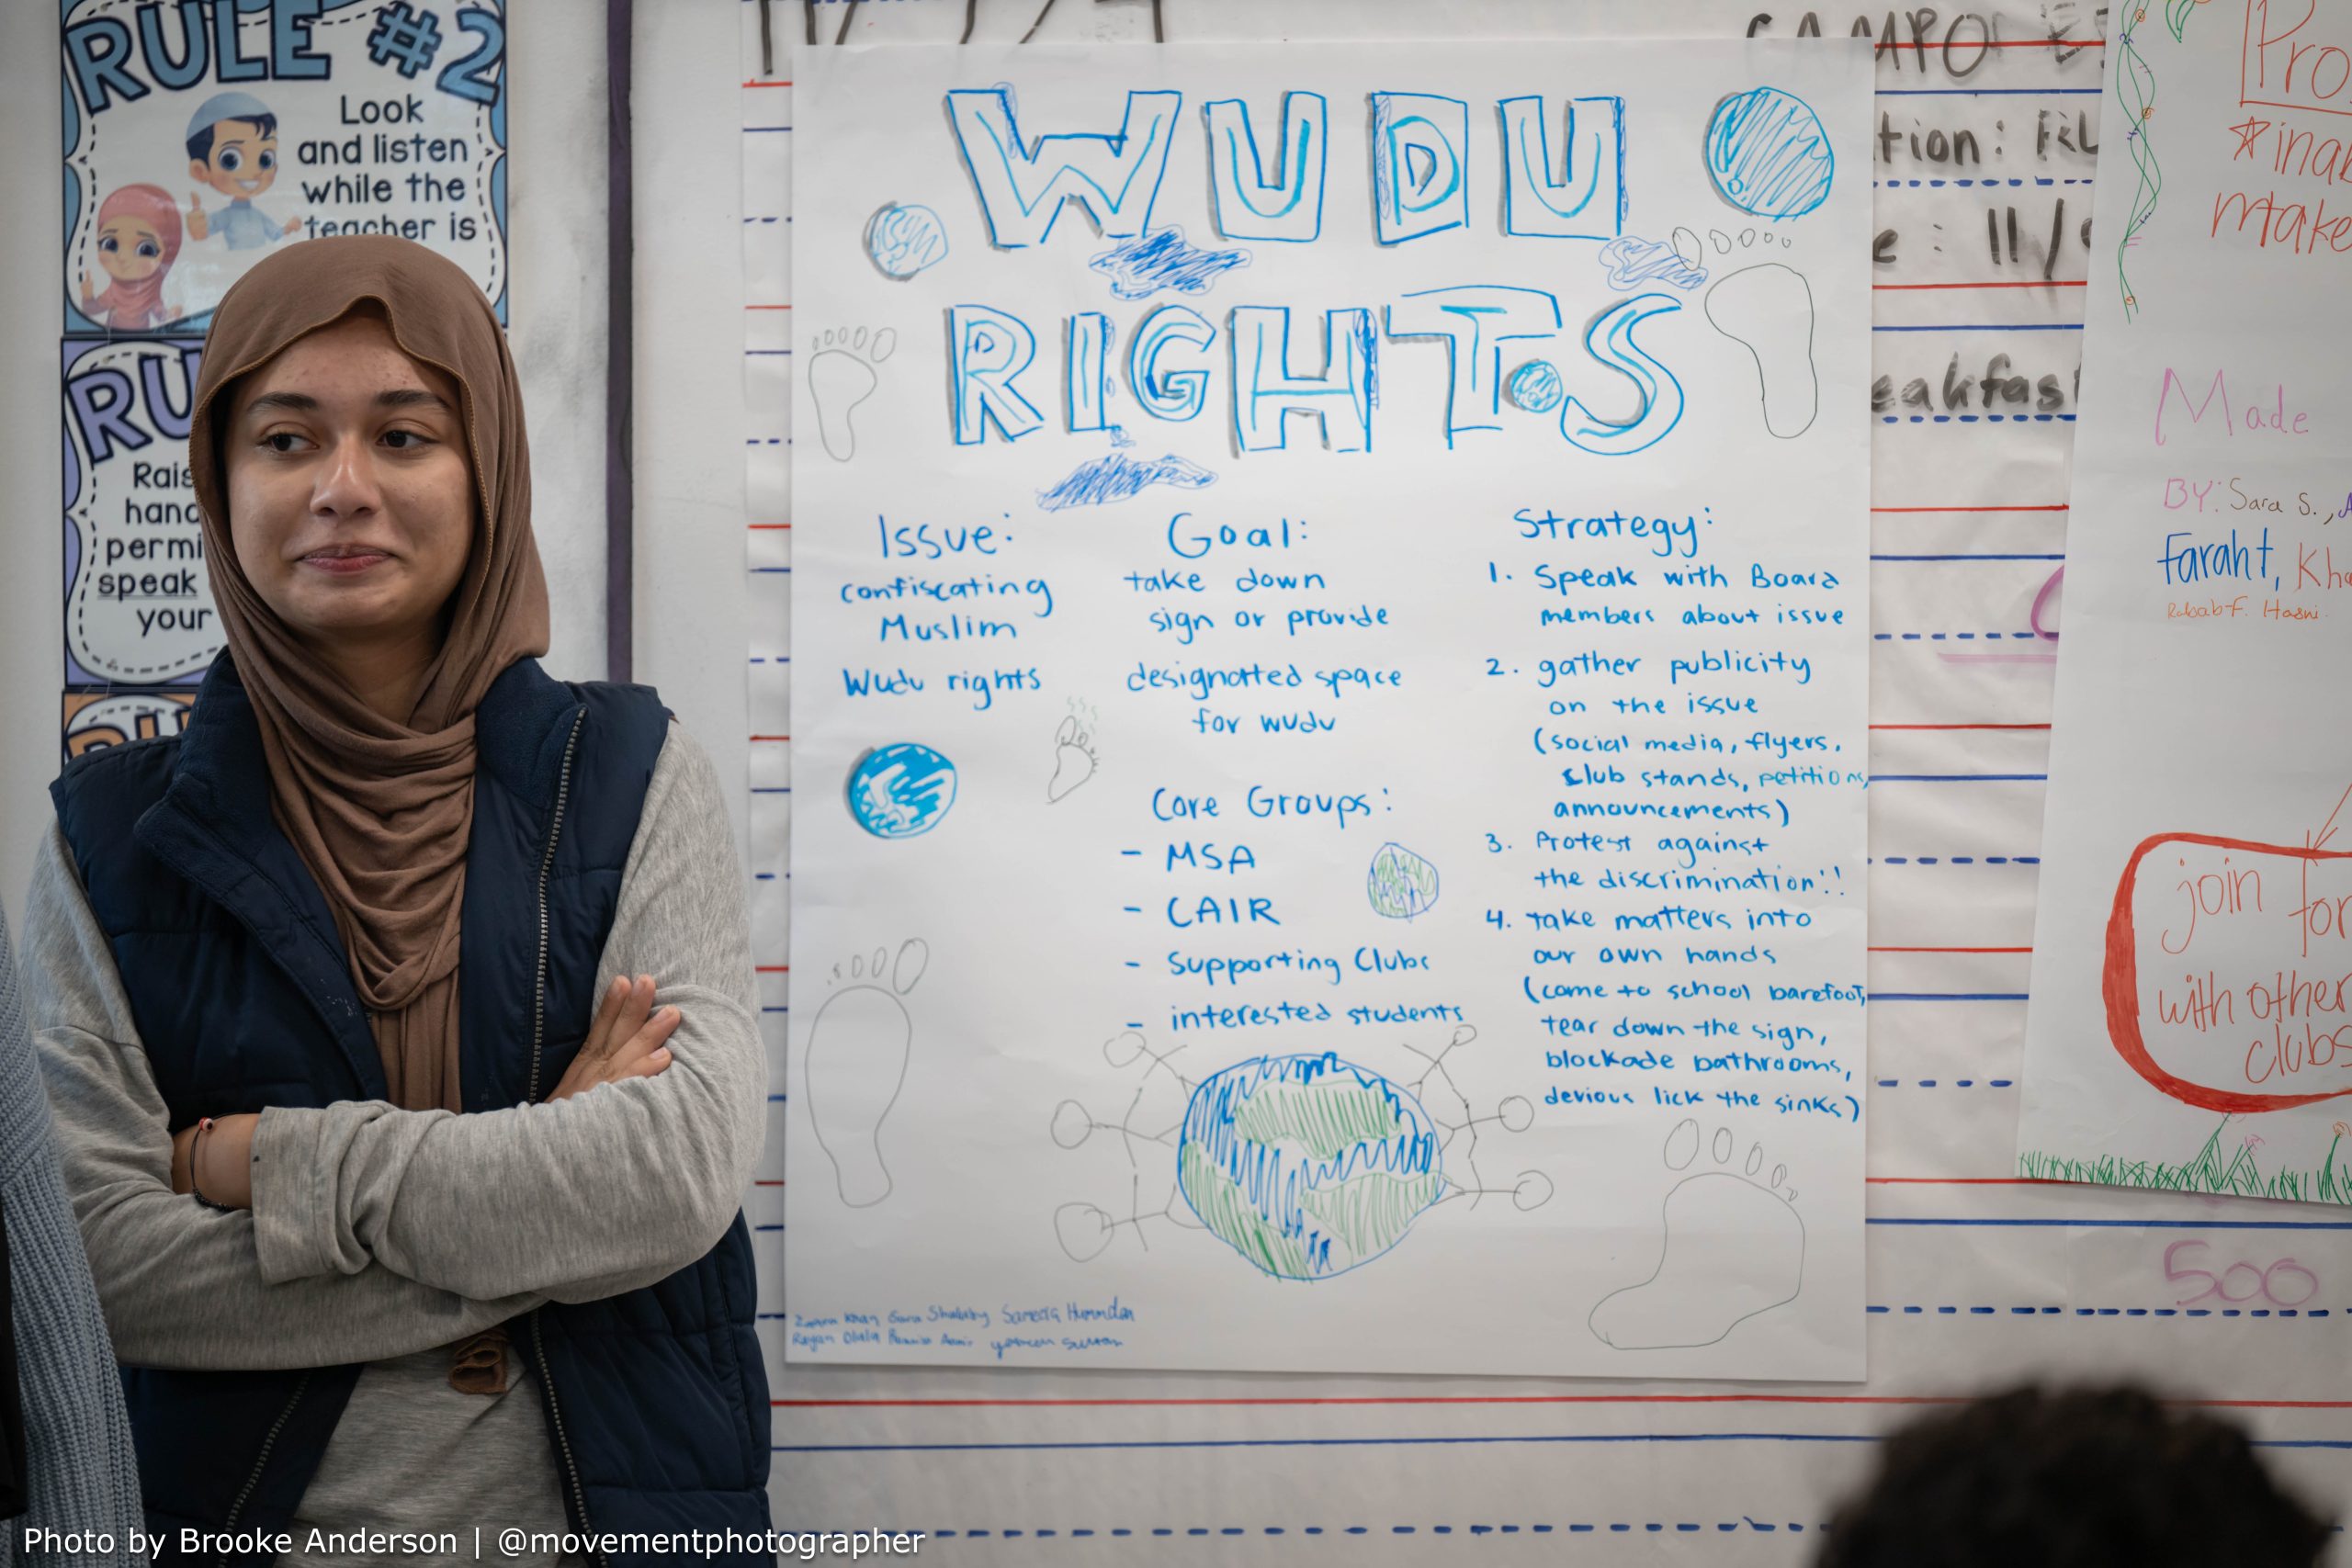 RULE #2
Look
and listen
while the
teacher is
RU
Rais
hand
permi
speak
your
RU
WUDU
RIGHTS
Issue:
confiscating
Muslim
Wudu rights
Goal:
take down
sign or provide
designatted space
for wudu
Core Groups:
- MSA
- CAIR
- Supporting Clubs
- interested students
Strategy:
1. Speak with Board
members about issue
2. gather publicity
on the issue
(social media, flyers,
club stands, petitions,
announcements)
3. Protest against
the discrimination!!
4. take matters into
our own hands
(come to school barefoot,
tear down the sign,
blockade bathrooms,
devious lick the sinks)
Khan Sara
CAMPO
tion:
e: 11/
eakfast
Pro
*ina
make
Made
BY: Sara S.,
Farah t, Kha
Rabab F.
join for
with other
clubs
500
Photo by Brooke Anderson | @movementphotographer